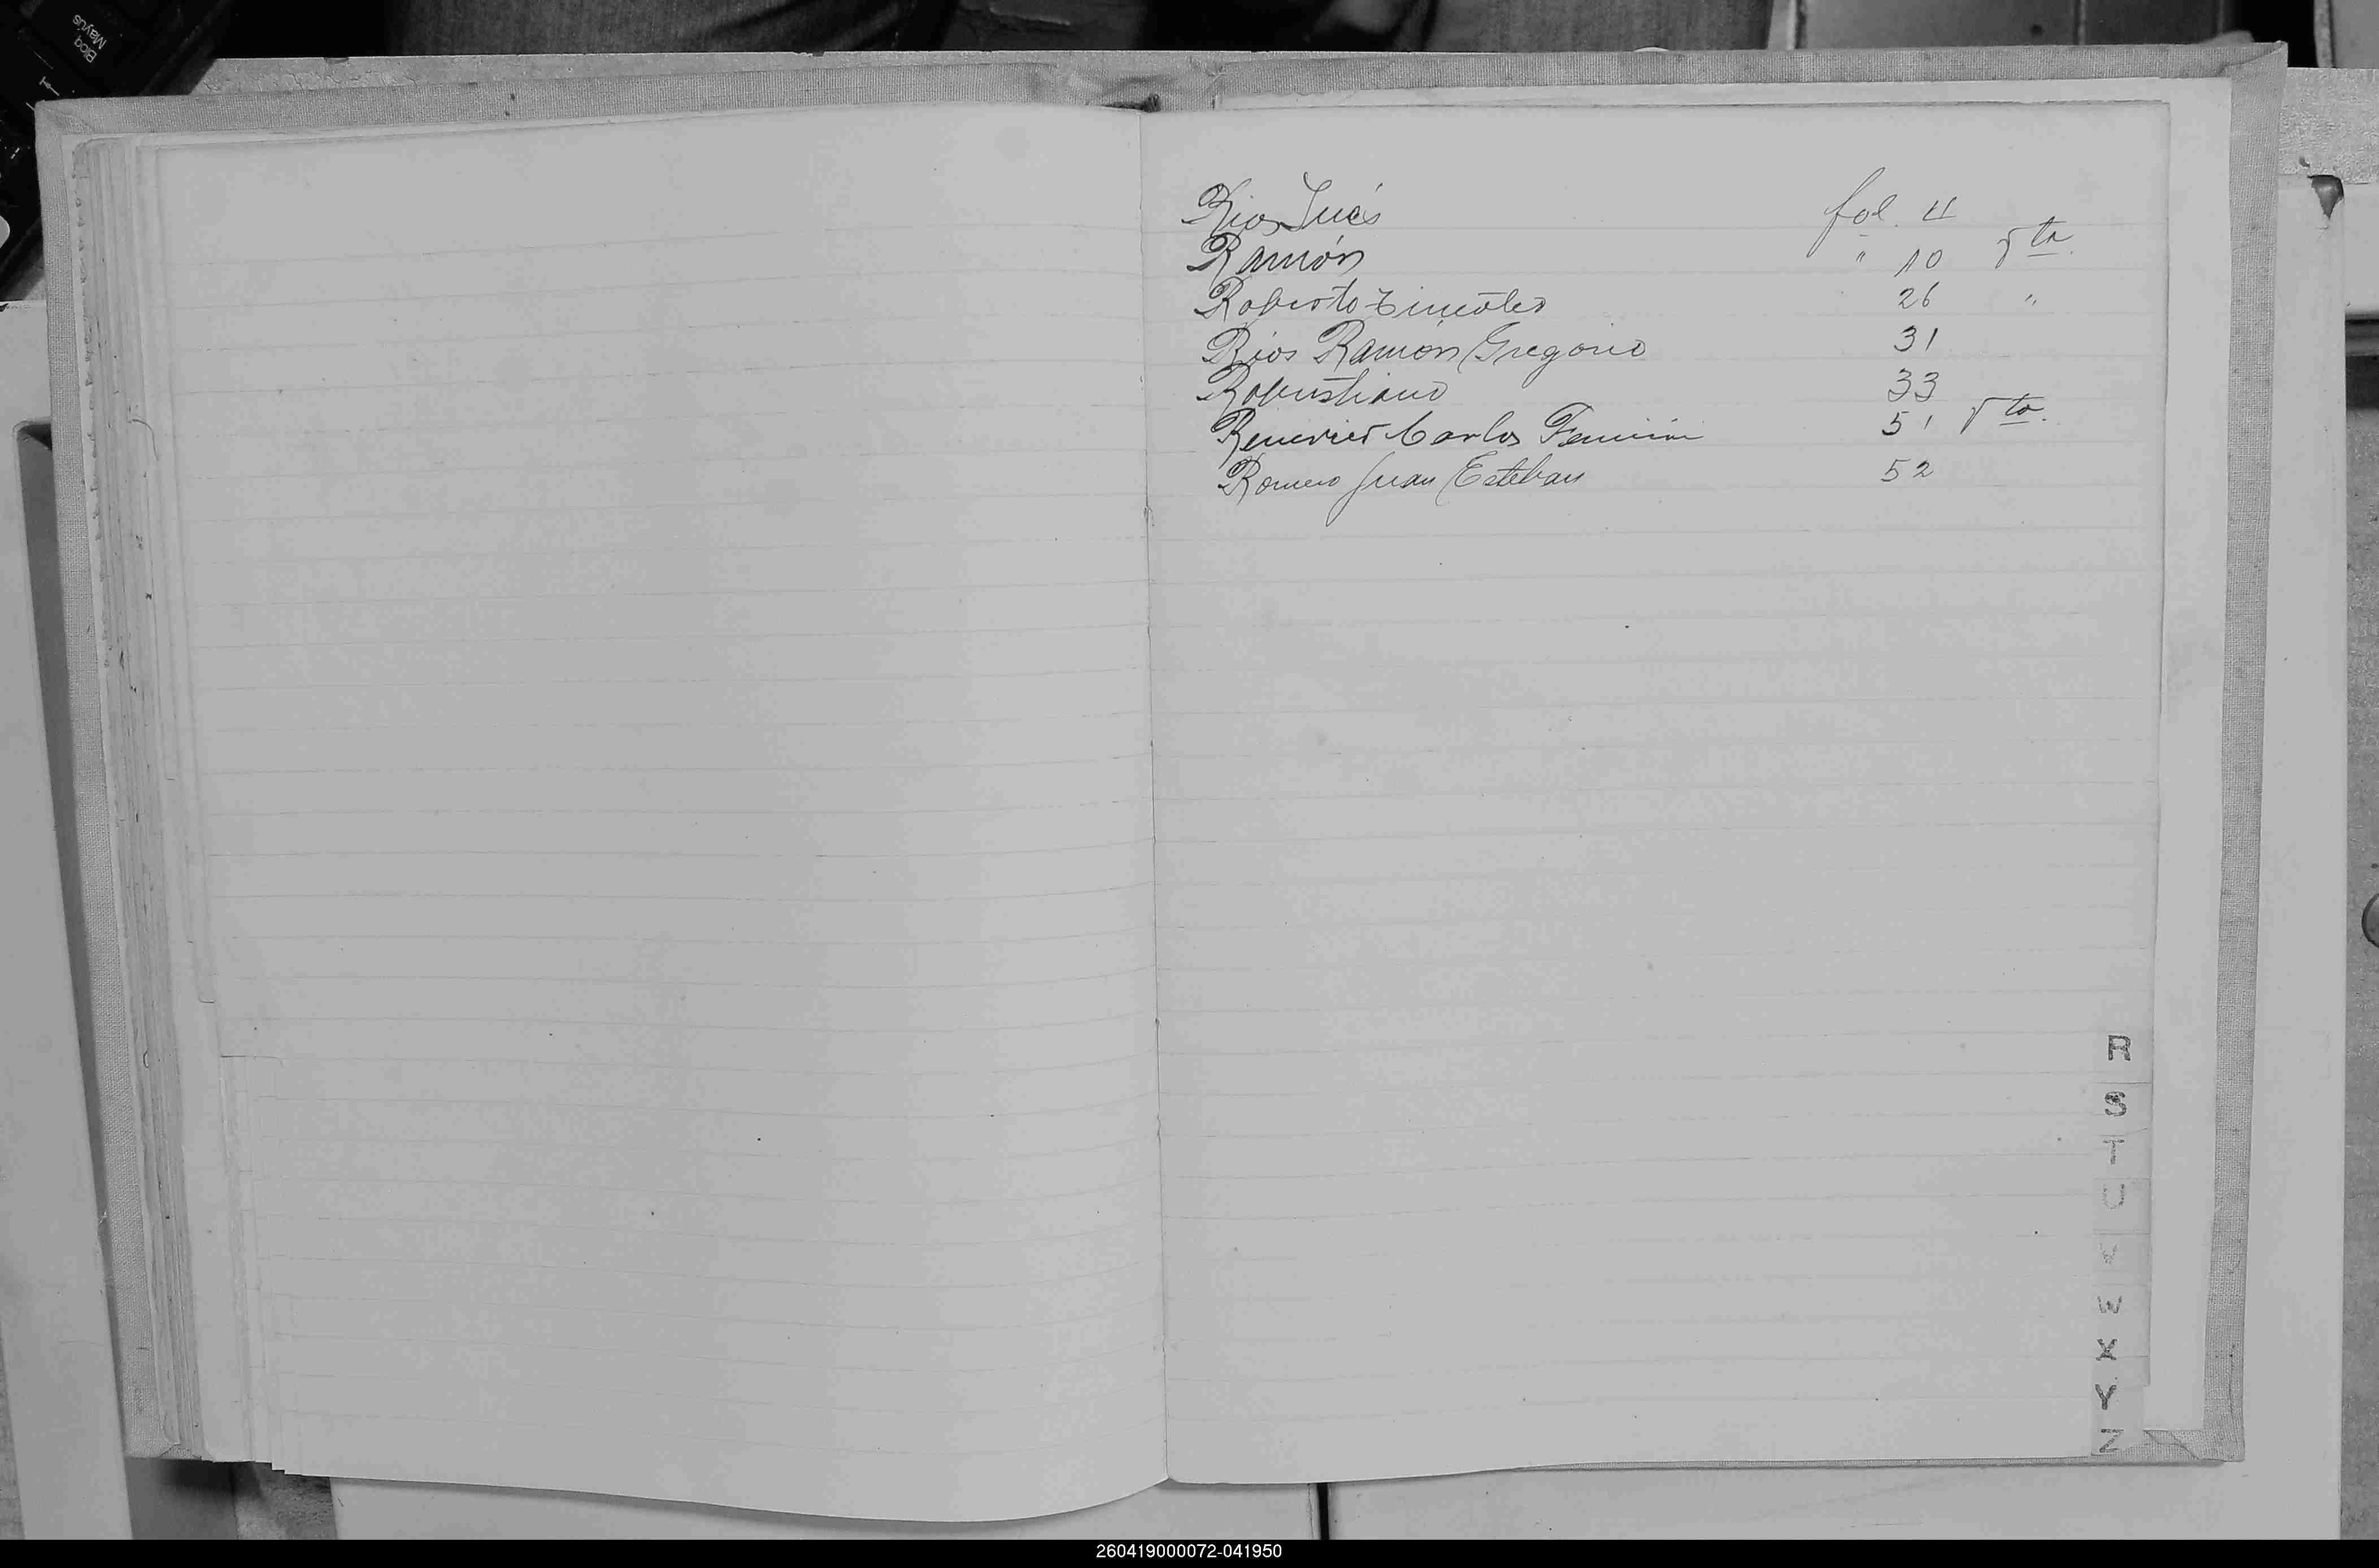 Bloq
Mayús
Rios Inés fol. 4
Ramón " 10 vta.
Roberto Timoteo 26 "
Rios Ramón Gregorio 31
Robustiano 33
Carlos Fermin 51 vta.
Romero Juan Esteban 52
R
S
T
U
V
W
X
Y
Z
260419000072-041950